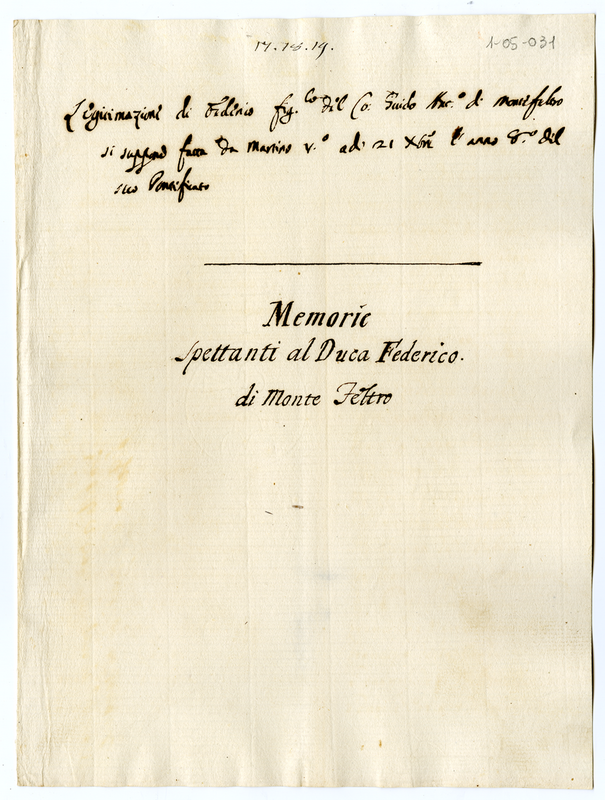 17. 18. 19.
1-05-031
Legitimazione di Federico fig.lo del Co: Guido Ant.o di Montefeltro
si suppone fatta da Martino V.o a di 21 Xbre l'anno 8.o del
suo Pontificato
Memorie
Spettanti al Duca Federico.
di Monte Feltro